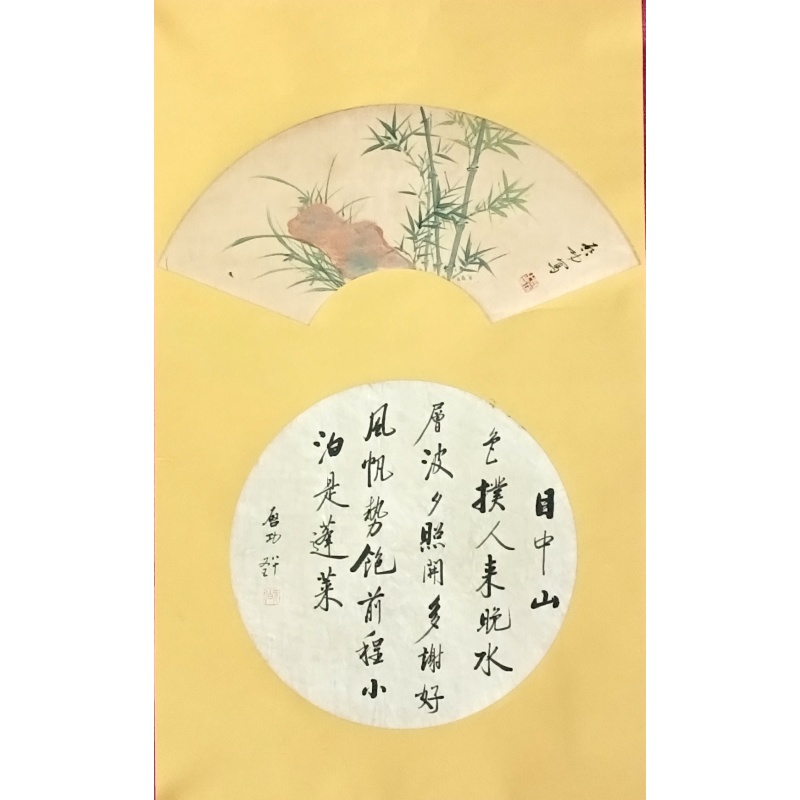 寫
目中山
色撲人来晚水
層波夕照開多謝好
風帆勢飽前程小
泊是蓬萊
啓功